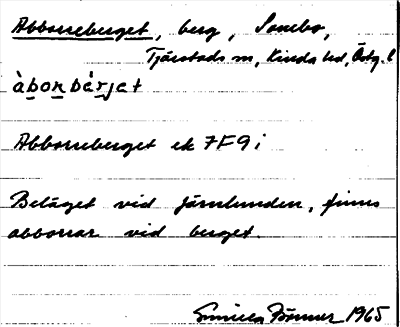 Abborreberget, berg, Sonebo,
Tjärstads sn, Kinda hd, Östg. l
àbo̲n̲bærjet
Abborreberget ek 7F9i
Beläget vid Järnlunden, finns
abborrar vid berget.
Gunilla 1965